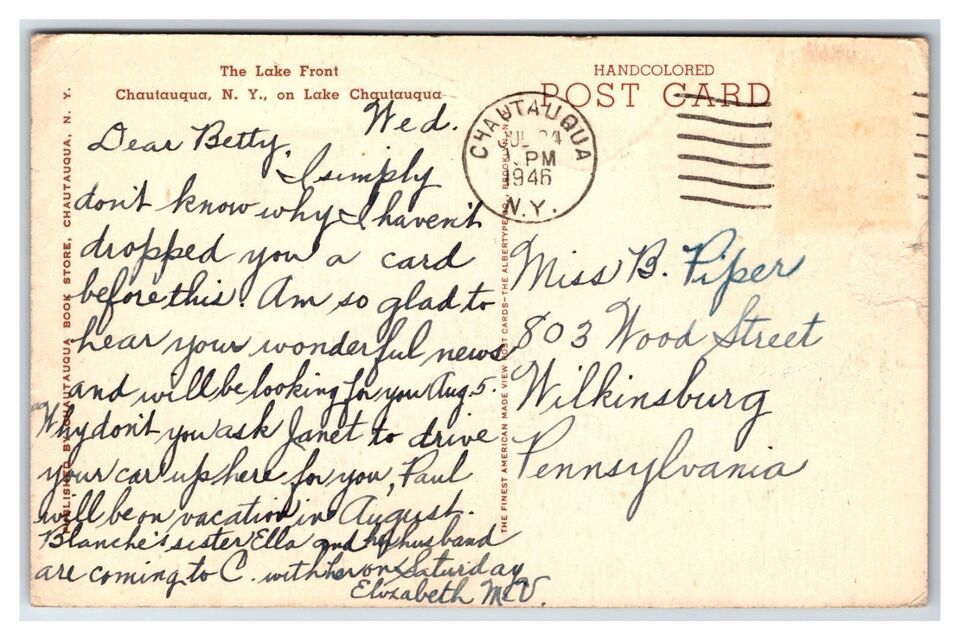 The Lake Front
Chautauqua, N. Y., on Lake Chautauqua
HANDCOLORED
POST CARD
CHAUTAUQUA
JUL 24
PM
1946
N.Y.
PUBLISHED BY CHAUTAUQUA BOOK STORE, CHAUTAUQUA, N. Y.
THE FINEST AMERICAN MADE VIEW POST CARDS—THE ALBERTYPE CO., BROOKLYN
Wed.
Dear Betty,
I simply
don't know why I haven't
dropped you a card
before this. Am so glad to
hear your wonderful news
and will be looking for you Aug 5.
Why don't you ask Janet to drive
your car up here for you, Paul
will be on vacation in August.
Blanche's sister Ella and her husband
are coming to C. with her on Saturday
Elizabeth McV.
Miss B. Piper
803 Wood Street
Wilkinsburg
Pennsylvania